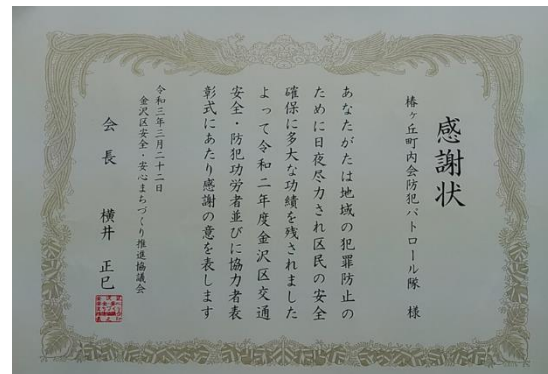 感謝状
椿ヶ丘町内会防犯パトロール隊 様
あなたがたは地域の犯罪防止の
ために日夜尽力され区民の安全
確保に多大な功績を残されました
よって令和二年度金沢区交通
安全・防犯功労者並びに協力者表
彰式にあたり感謝の意を表します
令和三年三月二十二日
金沢区安全・安心まちづくり推進協議会
会長 横井 正巳